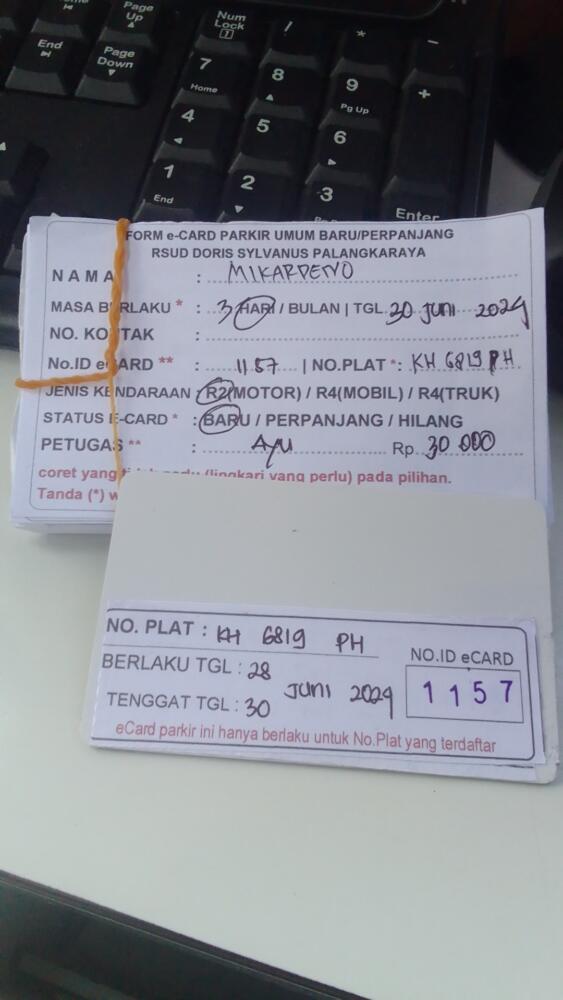 Page
Up
End
Page
Down
Num
Lock
!
*
−
7
Home
8
9
Pg Up
+
4
5
6
1
End
2
3
Enter
FORM e-CARD PARKIR UMUM BARU/PERPANJANG
RSUD DORIS SYLVANUS PALANGKARAYA
NAMA : MIKARDENO
MASA BERLAKU * : 3 HARI / BULAN | TGL 30 JUNI 2024
NO. KONTAK :
No.ID eCARD ** : 1157 | NO.PLAT *: KH 6819 PH
JENIS KENDARAAN : R2(MOTOR) / R4(MOBIL) / R4(TRUK)
STATUS E-CARD * : BARU / PERPANJANG / HILANG
PETUGAS ** : AYU Rp. 30 000
coret yang (lingkari yang perlu) pada pilihan.
Tanda (*) w
NO. PLAT : KH 6819 PH
BERLAKU TGL : 28
JUNI 2024
TENGGAT TGL : 30
NO.ID eCARD
1157
eCard parkir ini hanya berlaku untuk No.Plat yang terdaftar